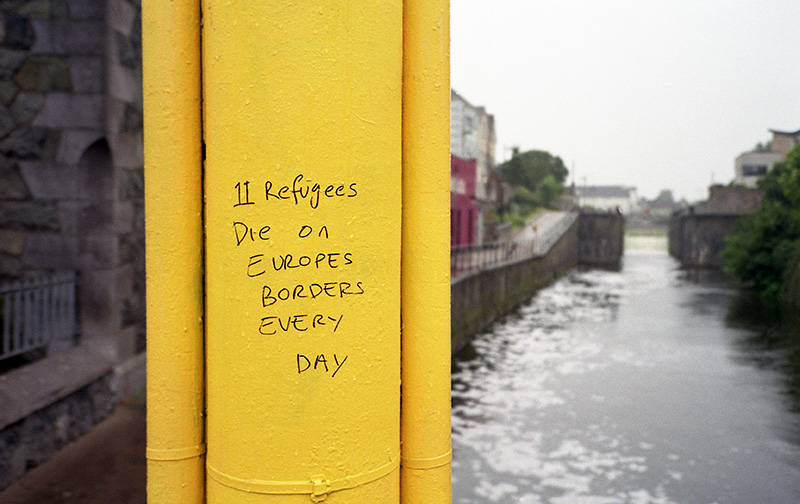 11 Refugees
Die on
EUROPES
BORDERS
EVERY
DAY